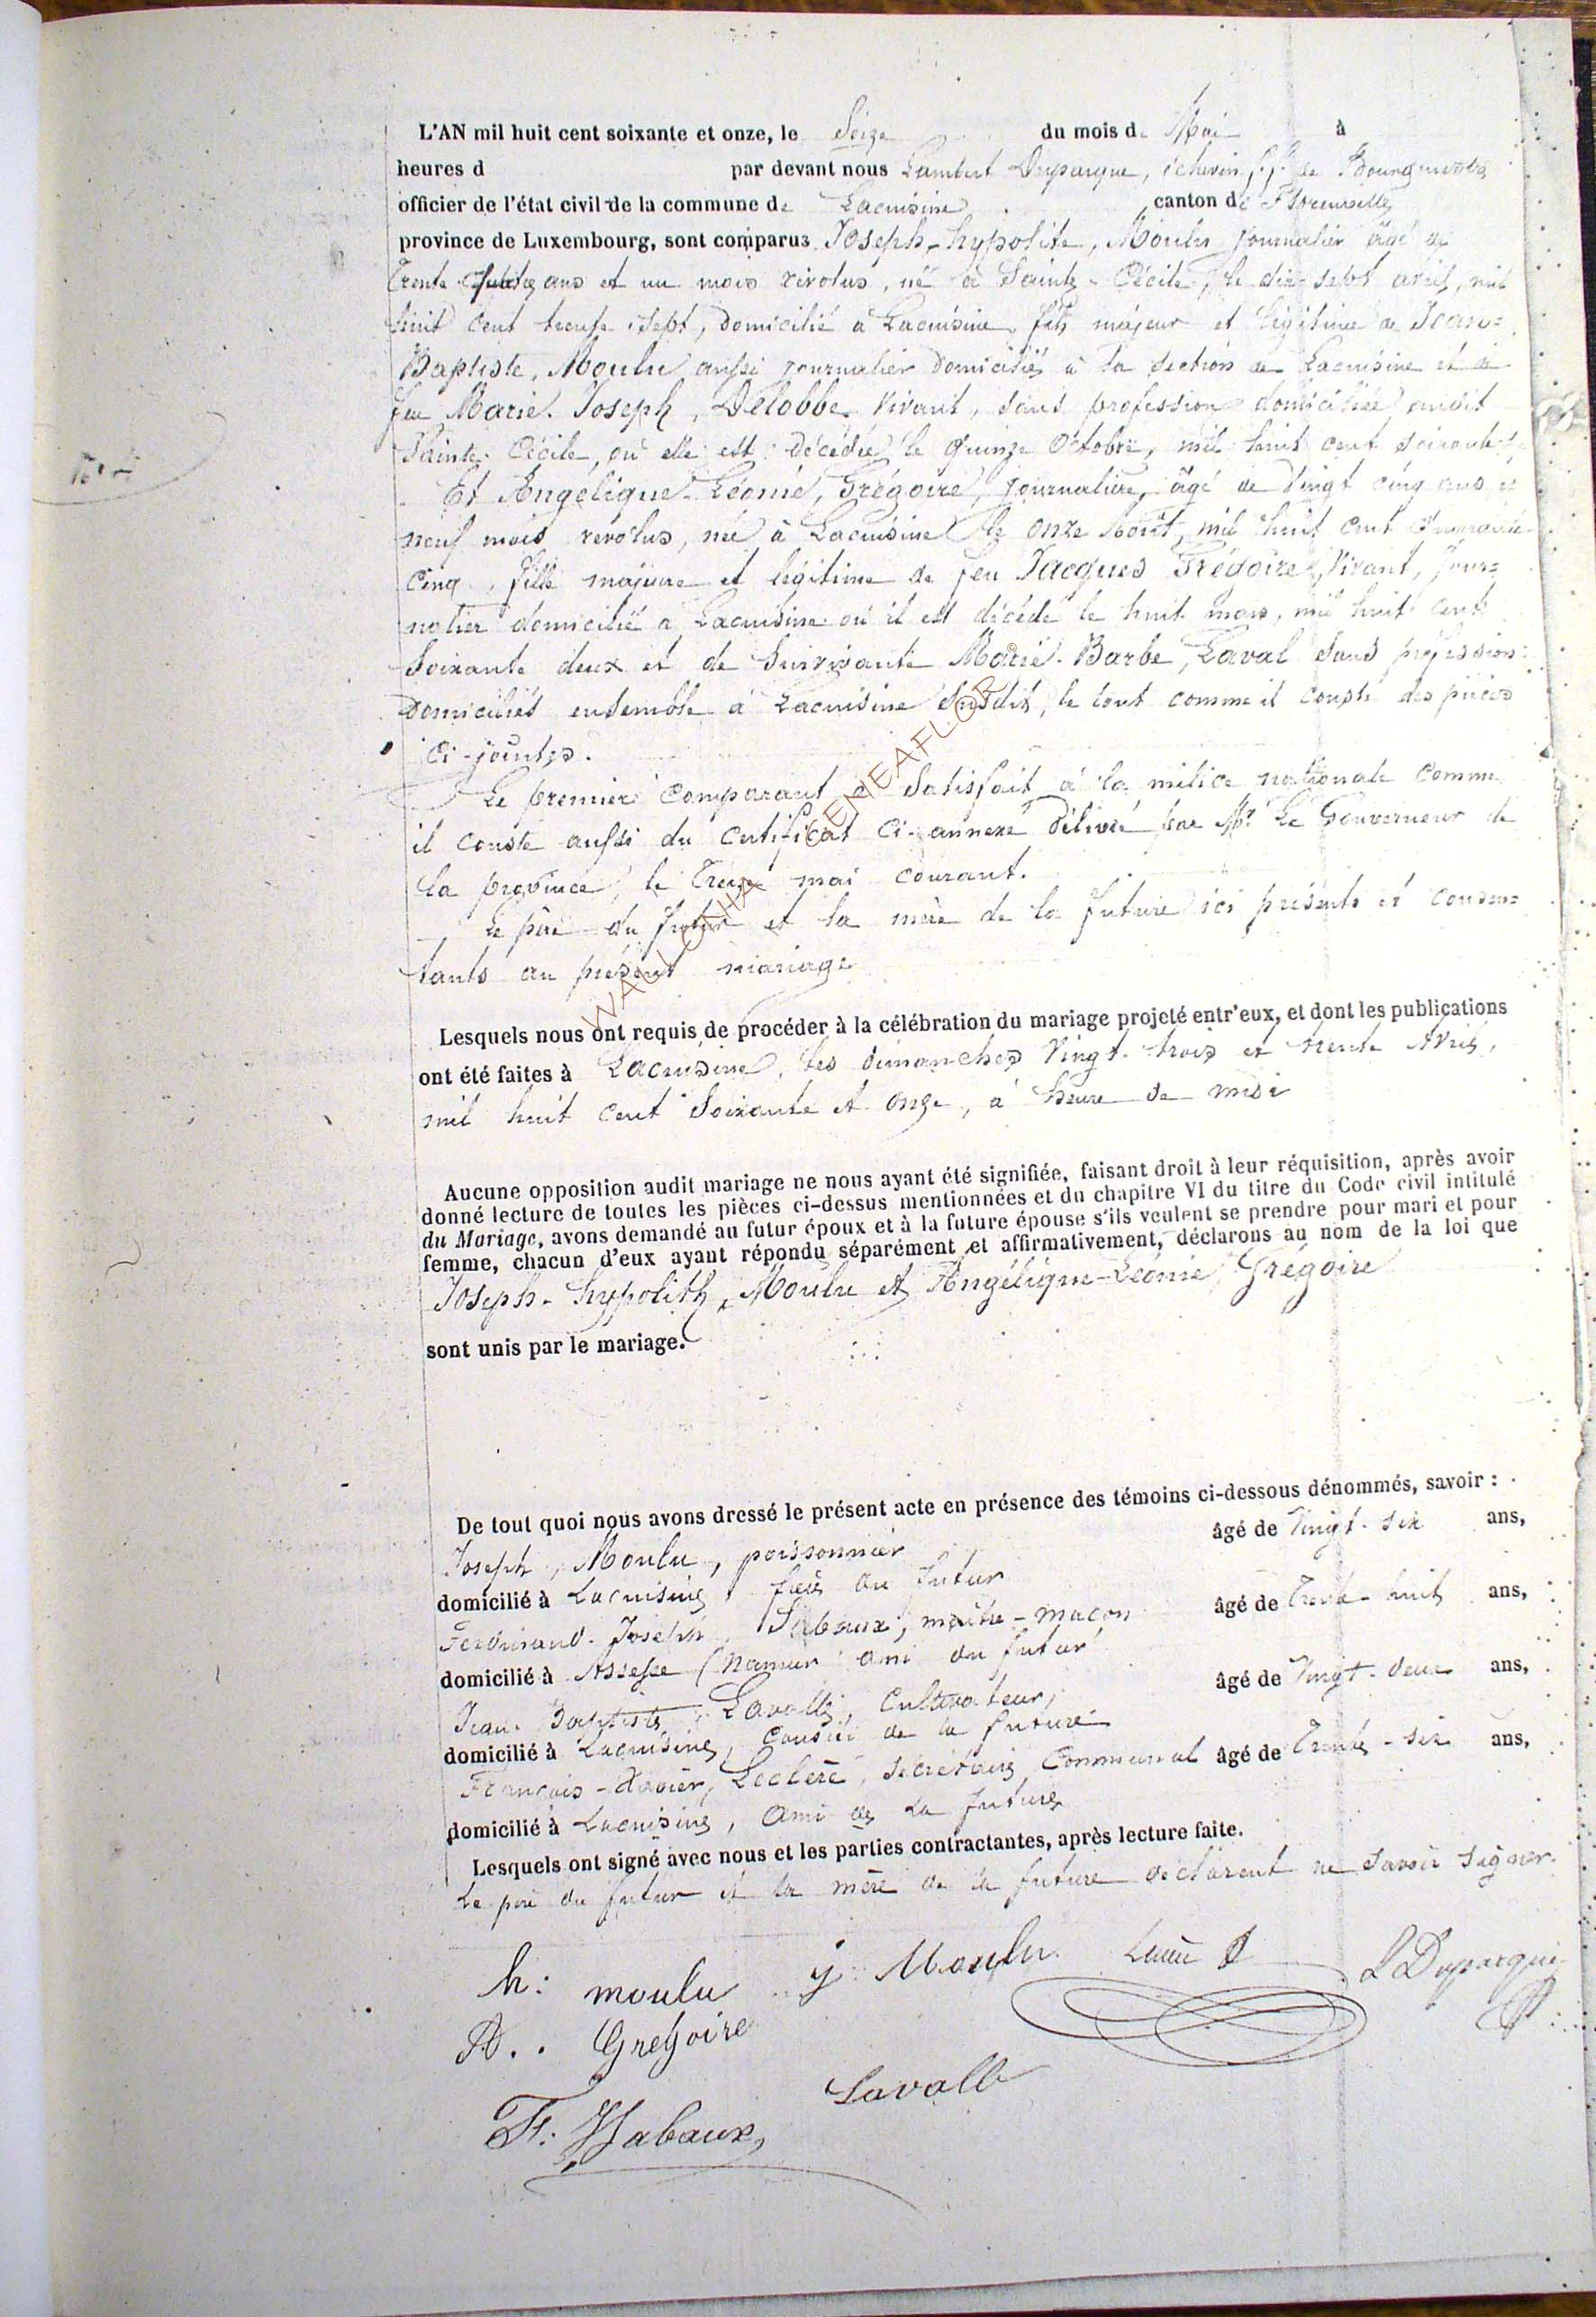 L'AN mil huit cent soixante et onze, le Seize du mois de Mai à
heures d par devant nous Lambert Duparque, échevin f.f. de Bourgmestre
officier de l'état civil de la commune de Lacuisine canton de Florenville
province de Luxembourg, sont comparus Joseph-hypolite, Moulu journalier âgé de
trente ans et un mois révolus, né à Sainte-Cécile, le dix-sept avril, mil
huit cent trente sept, domicilié à Lacuisine, fils majeur et légitime de Jean=
Baptiste, Moulu aussi journalier domiciliés à la section de Lacuisine et de
feu Marie-Joseph, Delobbe, vivant, sans profession domiciliée audit
Sainte-Cécile, où elle est décédée le quinze Octobre, mil huit cent soixante
Et Angelique-Léonie, Grégoire, journalière, âgé de vingt cinq ans et
neuf mois revolus, née à Lacuisine le onze Août, mil huit cent quarante
cinq, fille majeure et légitime de feu Jacques Grégoire, vivant, jour=
nalier domicilié à Lacuisine où il est décédé le huit mars, mil huit cent
soixante deux et de Survivante Marie-Barbe, Laval sans profession
domiciliés ensemble à Lacuisine susdit, le tout comme il conste des pièces
ci-jointes.
Le premier comparant a satisfait à la milice nationale comme
il conste aussi du certificat ci-annexé délivré par Mr Le Gouverneur de
la province, le treize mai courant.
Le père du futur et la mère de la future ici présents et consen=
tants au présent mariage
Lesquels nous ont requis de procéder à la célébration du mariage projeté entr'eux, et dont les publications
ont été faites à Lacuisine, les dimanches vingt-trois et trente Avril,
mil huit cent soixante et onze, à heure de midi
Aucune opposition audit mariage ne nous ayant été signifiée, faisant droit à leur réquisition, après avoir
donné lecture de toutes les pièces ci-dessus mentionnées et du chapitre VI du titre du Code civil intitulé
du Mariage, avons demandé au futur époux et à la future épouse s'ils veulent se prendre pour mari et pour
femme, chacun d'eux ayant répondu séparément et affirmativement, déclarons au nom de la loi que
Joseph-hypolith, Moulu et Angélique-Léonie, Grégoire
sont unis par le mariage.
De tout quoi nous avons dressé le présent acte en présence des témoins ci-dessous dénommés, savoir :
Joseph, Moulu, poissonnier âgé de vingt-six ans,
domicilié à Lacuisine, frère du futur
Ferdinand-Joseph, maître-maçon âgé de trente-huit ans,
domicilié à Assesse (Namur ami du futur
Jean-Baptiste, Lavalle, cultivateur, âgé de vingt-deux ans,
domicilié à Lacuisine, cousin de la future
François-Xavier, Leclere, secrétaire communal âgé de trente-six ans,
domicilié à Lacuisine, ami de la future
Lesquels ont signé avec nous et les parties contractantes, après lecture faite.
Le père du futur et la mère de la future déclarent ne savoir signer.
h: moulu j Moulu L Duparque
A.. Gregoire
Lavalle
F:
WALLONIA © GENEAFLOR